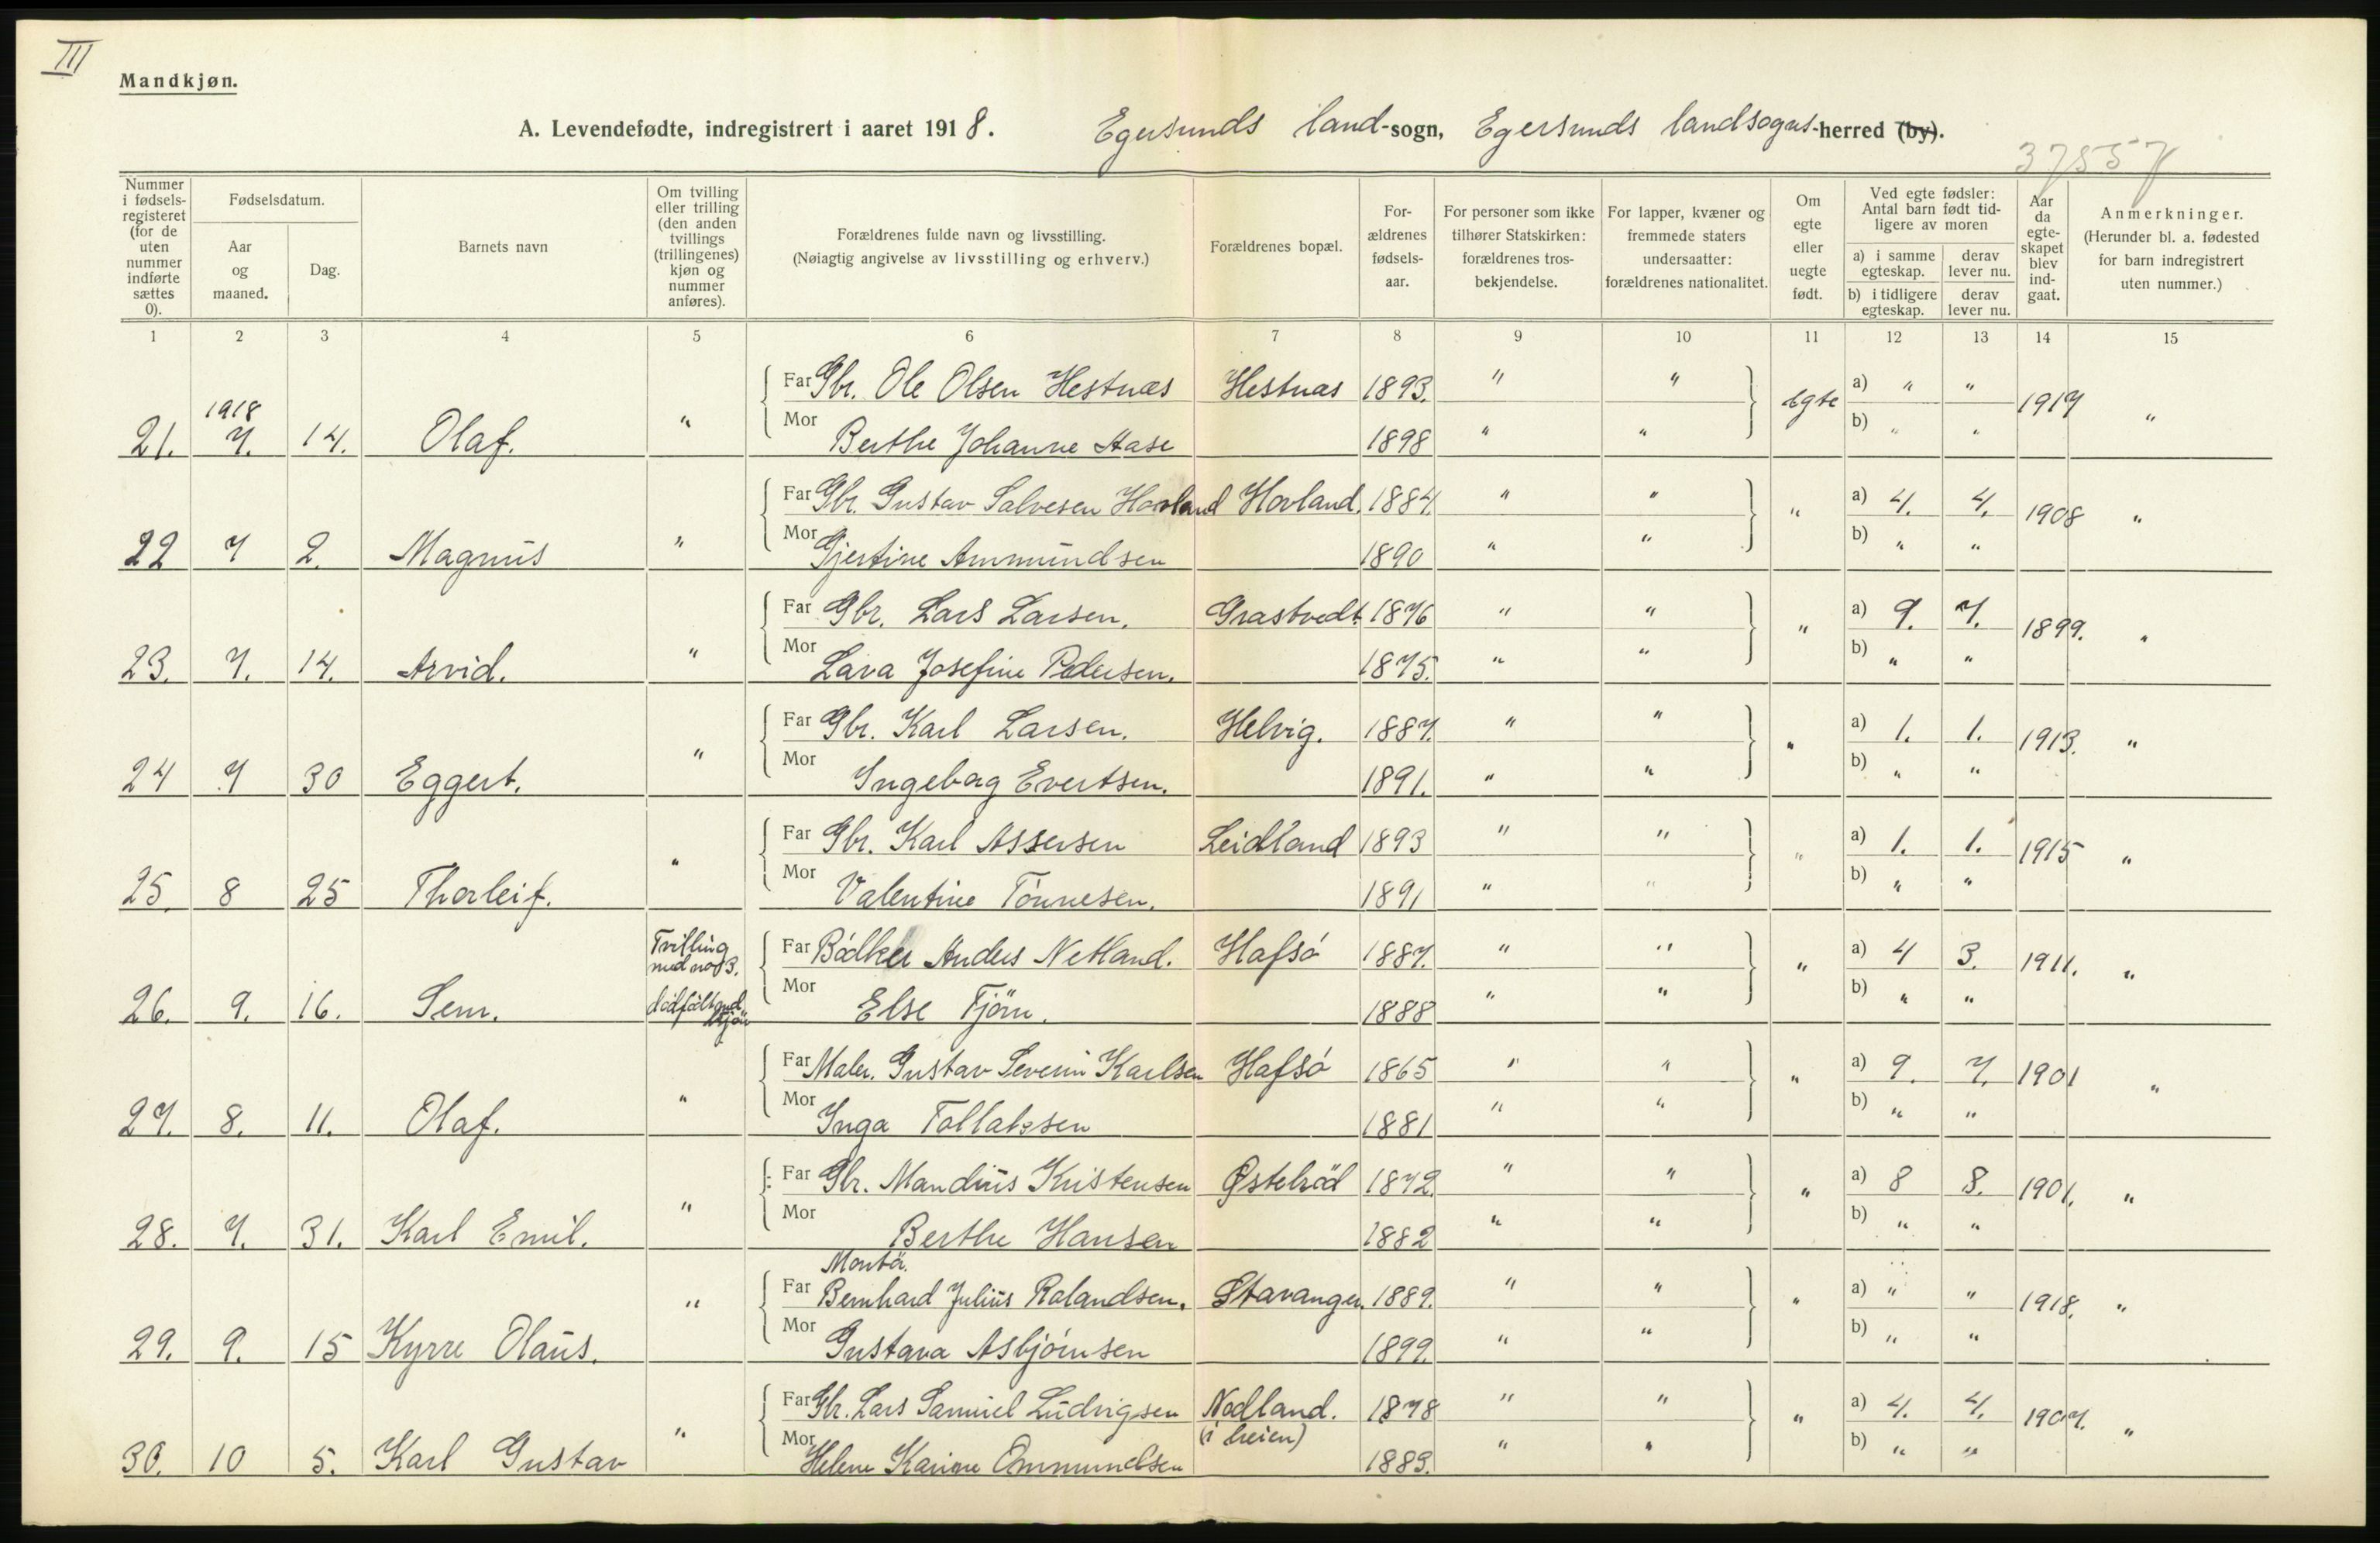 III
Mandkjøn.
A. Levendefødte, indregistrert i aaret 1918. Egersunds land-sogn, Egersunds landsogns-herred (by).
37557
Nummer i fødselsregisteret (for de uten nummer indførte sættes 0).
Fødselsdatum.
Aar og maaned.
Dag.
Barnets navn
Om tvilling eller trilling (den anden tvillings (trillingenes) kjøn og nummer anføres).
Forældrenes fulde navn og livsstilling.
(Nøiagtig angivelse av livsstilling og erhverv.)
Forældrenes bopæl.
Forældrenes fødselsaar.
For personer som ikke tilhører Statskirken: forældrenes trosbekjendelse.
For lapper, kvæner og fremmede staters undersaatter: forældrenes nationalitet.
Om egte eller uegte født.
Ved egte fødsler: Antal barn født tidligere av moren
a) i samme egteskap.
derav lever nu.
b) i tidligere egteskap.
derav lever nu.
Aar da egteskapet blev indgaat.
Anmerkninger.
(Herunder bl. a. fødested for barn indregistrert uten nummer.)
1 2 3 4 5 6 7 8 9 10 11 12 13 14 15
Far Gbr. Ole Olsen Hestnæs Hestnæs 1893. " " Egte a) " " 1917 "
1918
21. 7. 14. Olaf. " Mor Berthe Johanne Aase 1898 " " b) " "
Far Gbr. Gustav Salvesen Hovland Hovland. 1884. " " " a) 4. 4. 1908 "
22 7 2. Magnus " Mor Gjertine Ammundsen 1890 " " b) " "
Far Gbr. Lars Larsen. Grastvedt. 1876 " " " a) 9. 7. 1899. "
23. 7. 14. Arvid. " Mor Lava Josefine Pedersen. 1875. " " b) " "
Far Gbr. Karl Larsen. Helvig. 1887. " " " a) 1. 1. 1913. "
24 7 30 Eggert. " Mor Ingeborg Evertsen. 1891. " " b) " "
Far Gbr. Karl Assersen Leidland 1893 " " " a) 1. 1. 1915 "
25. 8 25 Thorleif. " Mor Valentine Tönnesen. 1891 " " b) " "
Tvilling med no 3.
Far Bödker Anders Netland. Hafsö 1887. " " " a) 4 3. 1911. "
26. 9. 16. Sem. dödfödt Mor Else Tjörn. 1888 " " b) " "
Far Maler. Gustav Severin Karlsen Hafsö 1865 " " " a) 9. 7. 1901 "
27. 8. 11. Olaf. " Mor Inga Tollaksen 1881 " " b) " "
Far Gbr. Mandius Kristensen Østebröd 1872. " " " a) 8 8. 1901. "
28. 7. 31. Karl Emil. " Mor Berthe Hansen 1882 " " b) " "
Montör.
Far Bernhard Julius Rolandsen. Stavanger. 1889. " " " a) " " 1918. "
29. 9. 15 Kyrre Olaus. " Mor Gustava Asbjörnsen 1899. " " b) " "
Far Gbr. Lars Samuel Ludvigsen Nodland. 1878 " " " a) 4. 4. 1907. "
(i heien)
30. 10 5. Karl Gustav " Mor Helene Karine Ommundsen 1883. " " b) " "